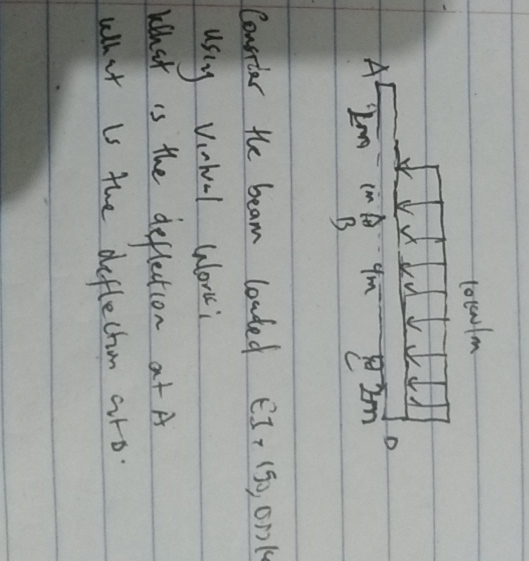 10kN/m
A
2m 1m 4m 2m
B C D
Consider the beam loaded EI = 150,000
using virtual work;
What is the deflection at A
What is the deflection at D.